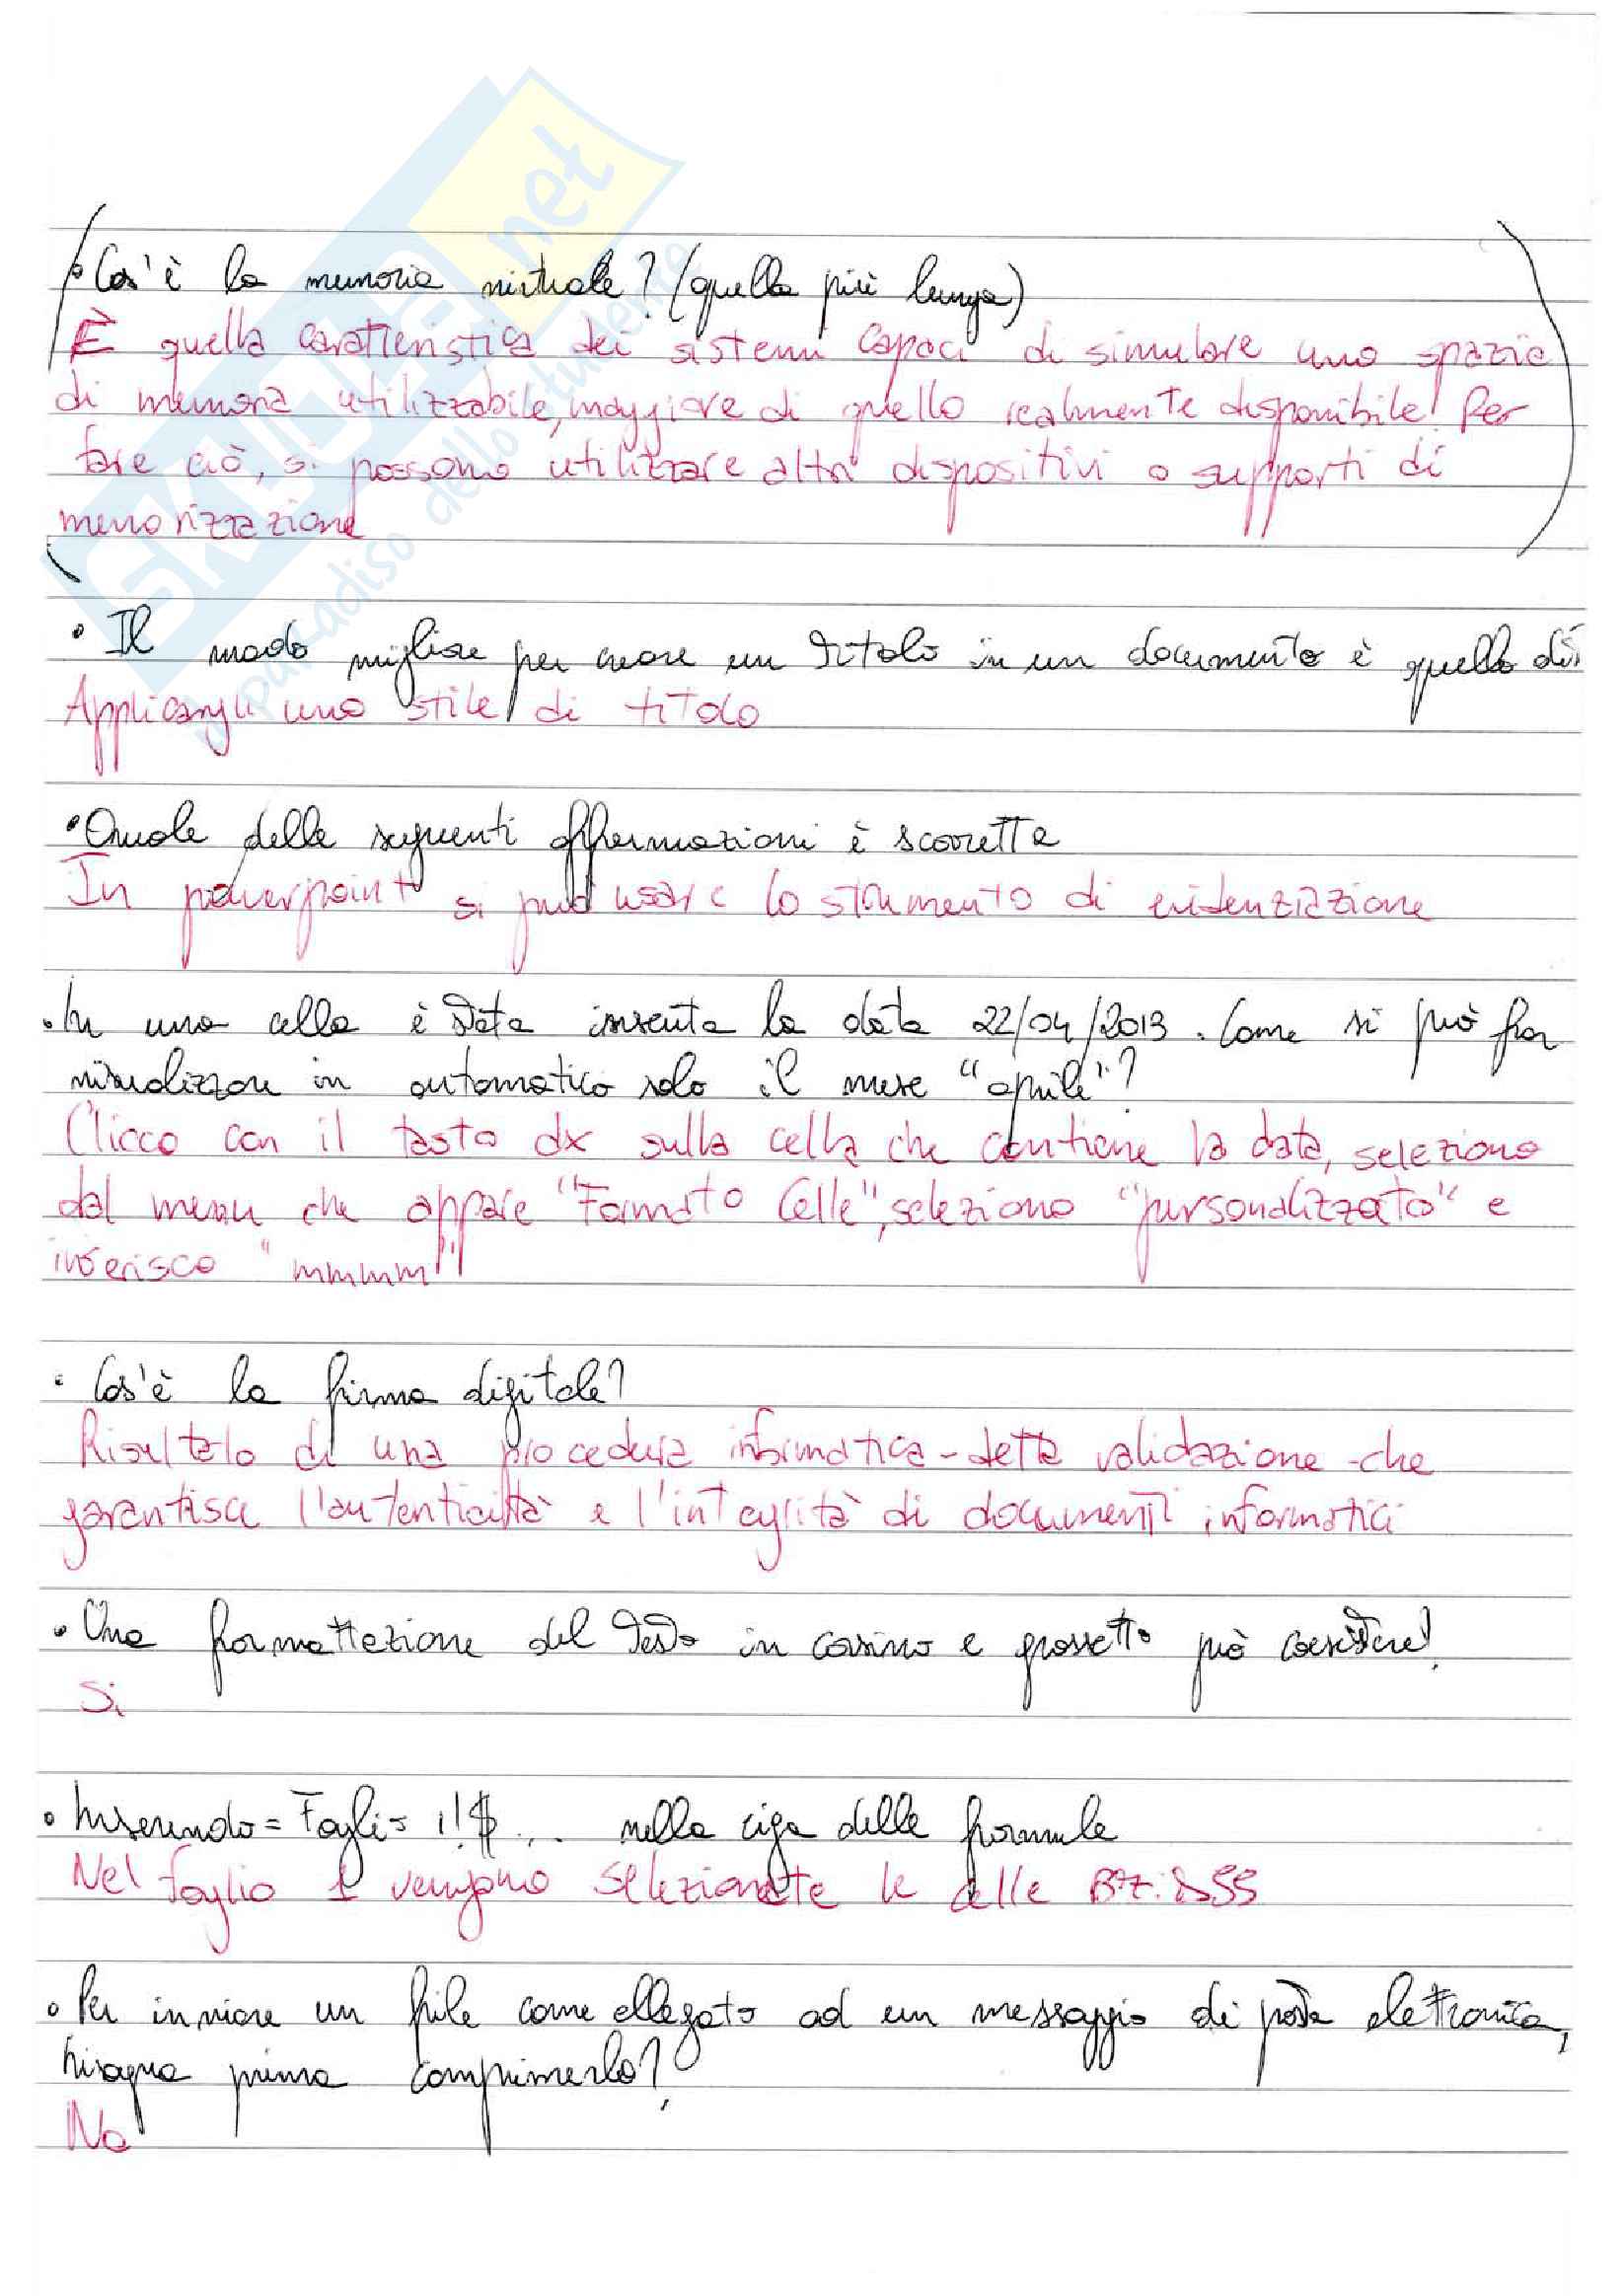 SKUOLA.net
il paradiso dello studente
• Cos'è la memoria virtuale? (quella più lunga)
È quella caratteristica dei sistemi capaci di simulare uno spazio
di memoria utilizzabile, maggiore di quello realmente disponibile! Per
fare ciò, si possono utilizzare altri dispositivi o supporti di
memorizzazione
• Il modo migliore per creare un titolo in un documento è quello di:
Applicargli uno stile di titolo
• Quale delle seguenti affermazioni è scorretta
In powerpoint si può usare lo strumento di evidenziazione
• In una cella è stata inserita la data 22/04/2013. Come si può far
visualizzare in automatico solo il mese "aprile"?
Clicco con il tasto dx sulla cella che contiene la data, seleziono
dal menu che appare "Formato Celle", seleziono "personalizzato" e
inserisco "mmmm"
• Cos'è la firma digitale?
Risultato di una procedura informatica - detta validazione - che
garantisce l'autenticità e l'integrità di documenti informatici
• Una formattazione del testo in corsivo e grassetto può coesistere?
Si
• Inserendo = Foglio 1!$... nella riga delle formule
Nel foglio 1 vengono selezionate le celle
• Per inviare un file come allegato ad un messaggio di posta elettronica,
bisogna prima comprimerlo?
No